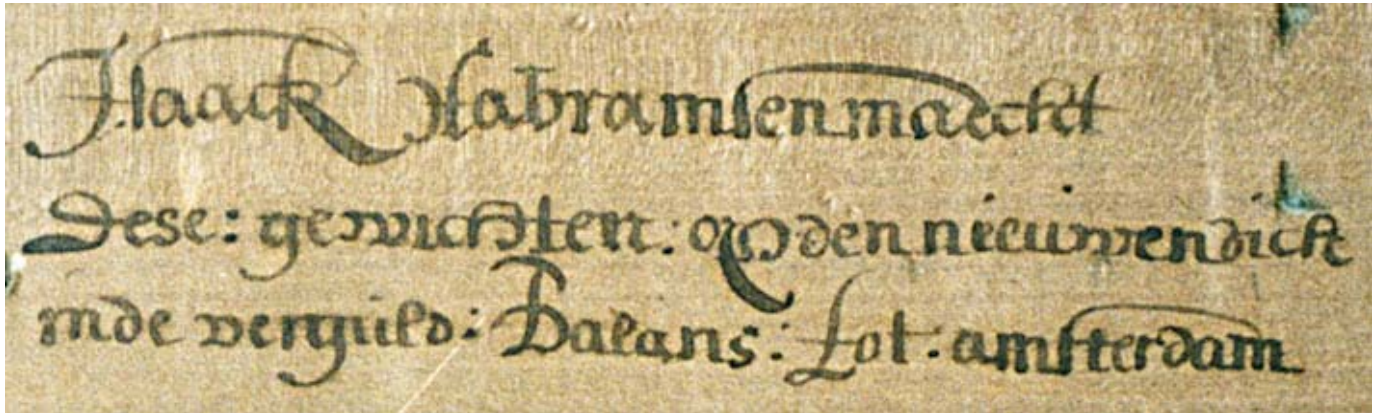 Isaack Habramsen maeckt
dese: gewichten: op den nieuwendick
inde verguld: Balans: tot: amsterdam